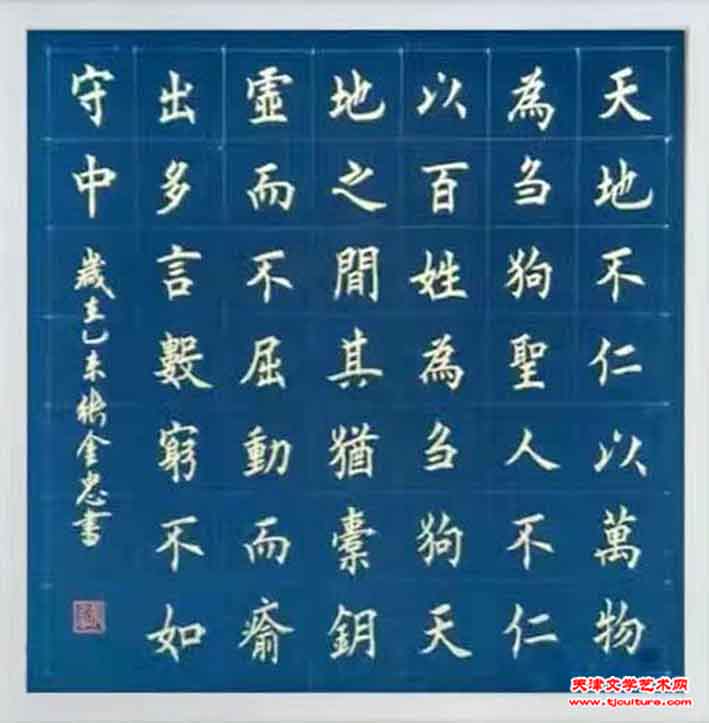 天地不仁以萬物
為刍狗聖人不仁
以百姓為刍狗天
地之間其猶橐鈅
虛而不屈動而瘉
出多言數窮不如
守中
歲在乙未張金忠書
天津文学艺术网
www.tjculture.com